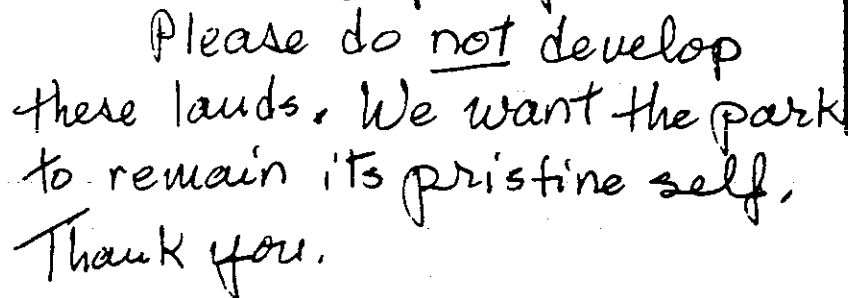 Please do not develop
these lands. We want the park
to remain its pristine self.
Thank you.